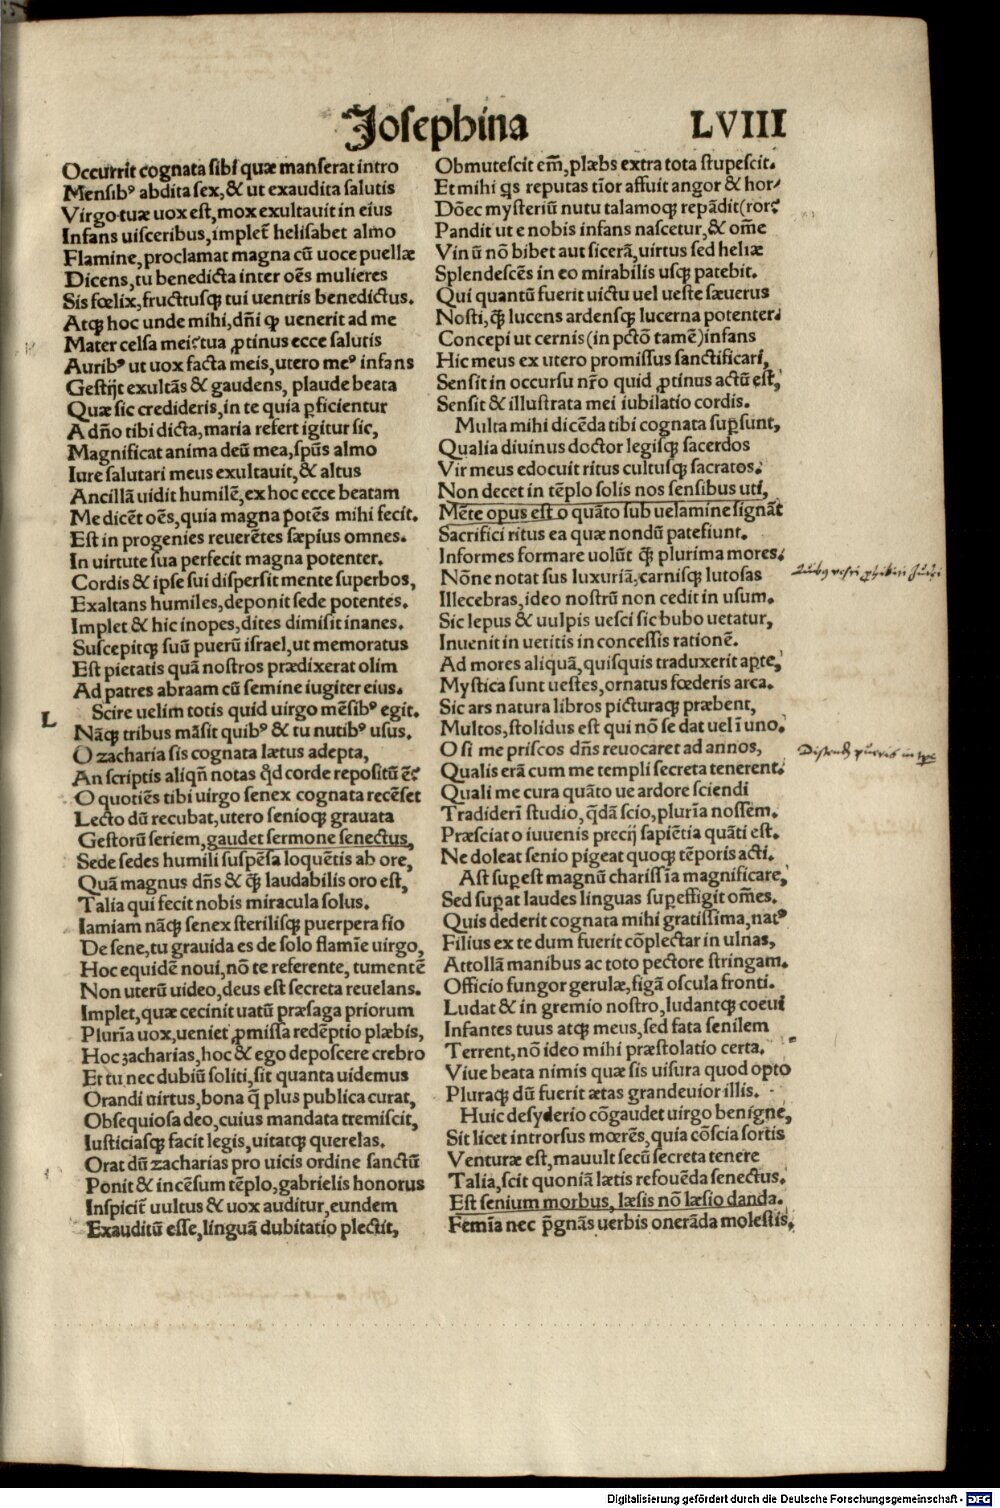 Josephina
LVIII
Occurrit cognata sibi quæ manserat intro
Mensibꝰ abdita sex, & ut exaudita salutis
Virgo tuæ uox est, mox exultauit in eius
Infans uisceribus, implet̃ helisabet almo
Flamine, proclamat magna cũ uoce puellæ
Dicens, tu benedicta inter oẽs mulieres
Sis fœlix, fructusqꝫ tui uentris benedictus.
Atqꝫ hoc unde mihi, dñi ꝙ uenerit ad me
Mater celsa mei: tua ꝓtinus ecce salutis
Auribꝰ ut uox facta meis, utero meꝰ infans
Gestijt exultãs & gaudens, plaude beata
Quæ sic credideris, in te quia ꝑficientur
A dño tibi dicta, maria refert igitur sic,
Magnificat anima deũ mea, spũs almo
Iure salutari meus exultauit, & altus
Ancillã uidit humilẽ, ex hoc ecce beatam
Me dicẽt oẽs, quia magna potẽs mihi fecit.
Est in progenies reuerẽtes sæpius omnes.
In uirtute sua perfecit magna potenter.
Cordis & ipse sui dispersit mente superbos,
Exaltans humiles, deponit sede potentes.
Implet & hic inopes, dites dimisit inanes.
Suscepitqꝫ suũ puerũ israel, ut memoratus
Est pietatis quã nostros prædixerat olim
Ad patres abraam cũ semine iugiter eius.
L
Scire uelim totis quid uirgo mẽsibꝰ egit.
Nãqꝫ tribus mãsit quibꝰ & tu nutibꝰ usus.
O zacharia sis cognata lætus adepta,
An scriptis aliqñ notas qd̃ corde repositũ ẽ:
O quotiẽs tibi uirgo senex cognata recẽset
Lecto dũ recubat, utero senioqꝫ grauata
Gestorũ seriem, gaudet sermone senectus,
Sede sedes humili suspẽsa loquẽtis ab ore,
Quã magnus dñs & q̃ꝫ laudabilis oro est,
Talia qui fecit nobis miracula solus.
Iamiam nãqꝫ senex sterilisqꝫ puerpera fio
De sene, tu grauida es de solo flamĩe uirgo,
Hoc equidẽ noui, nõ te referente, tumentẽ
Non uterũ uideo, deus est secreta reuelans.
Implet, quæ cecinit uatũ præsaga priorum
Plurĩa uox, ueniet ꝓmissa redẽptio plæbis,
Hoc zacharias, hoc & ego deposcere crebro
Et tu nec dubiũ soliti, sit quanta uidemus
Orandi uirtus, bona q̃ plus publica curat,
Obsequiosa deo, cuius mandata tremiscit,
Iusticiasqꝫ facit legis, uitatqꝫ querelas.
Orat dũ zacharias pro uicis ordine sanctũ
Ponit & incẽsum tẽplo, gabrielis honorus
Inspicit̃ uultus & uox auditur, eundem
Exauditũ esse, linguã dubitatio plectit,
Obmutescit em̃, plæbs extra tota stupescit.
Et mihi qs reputas tĩor affuit angor & hor/
Dõec mysteriũ nutu talamoqꝫ repãdit (ror:
Pandit ut e nobis infans nascetur, & om̃e
Vinũ nõ bibet aut sicerã, uirtus sed heliæ
Splendescẽs in eo mirabilis usqꝫ patebit.
Qui quantũ fuerit uictu uel ueste sæuerus
Nosti, q̃ꝫ lucens ardensqꝫ lucerna potenter.
Concepi ut cernis (in pctõ tamẽ) infans
Hic meus ex utero promissus sanctificari,
Sensit in occursu nr̃o quid ꝓtinus actũ est,
Sensit & illustrata mei iubilatio cordis.
Multa mihi dicẽda tibi cognata suꝑsunt,
Qualia diuinus doctor legisqꝫ sacerdos
Vir meus edocuit ritus cultusqꝫ sacratos.
Non decet in tẽplo solis nos sensibus uti,
Mẽte opus est o quãto sub uelamine signãt
Sacrifici ritus ea quæ nondũ patefiunt.
Informes formare uolũt q̃ꝫ plurima mores.
Nõne notat sus luxuriã, carnisqꝫ lutosas
Illecebras, ideo nostrũ non cedit in usum.
Sic lepus & uulpis uesci sic bubo uetatur,
Inuenit in uetitis in concessis rationẽ.
Ad mores aliquã, quisquis traduxerit aꝑte,
Mystica sunt uestes, ornatus fœderis arca.
Sic ars natura libros picturaqꝫ præbent,
Multos, stolidus est qui nõ se dat uel ĩ uno.
O si me priscos dñs reuocaret ad annos,
Qualis erã cum me templi secreta tenerent.
Quali me cura quãto ue ardore sciendi
Tradiderĩ studio, q̃dã scio, plurĩa nossem.
Præsciat o iuuenis precij sapiẽtia quãti est.
Ne doleat senio pigeat quoqꝫ tẽporis acti.
Ast suꝑest magnũ charissĩa magnificare,
Sed suꝑat laudes linguas suꝑeffigit om̃es.
Quis dederit cognata mihi gratissima, natꝰ
Filius ex te dum fuerit cõplectar in ulnas,
Attollã manibus ac toto pectore stringam.
Officio fungor gerulæ, figã oscula fronti.
Ludat & in gremio nostro, ludantqꝫ coeui
Infantes tuus atqꝫ meus, sed fata senilem
Terrent, nõ ideo mihi præstolatio certa.
Viue beata nimis quæ sis uisura quod opto
Pluraqꝫ dũ fuerit ætas grandeuior illis.
Huic desyderio cõgaudet uirgo benigne,
Sit licet introrsus mœrẽs, quia cõscia sortis
Venturæ est, mauult secũ secreta tenere
Talia, scit quoniã lætis refouẽda senectus.
Est senium morbus, læsis nõ læsio danda.
Femĩa nec p̃gnãs uerbis onerãda molestis,
Digitalisierung gefördert durch die Deutsche Forschungsgemeinschaft - DFG